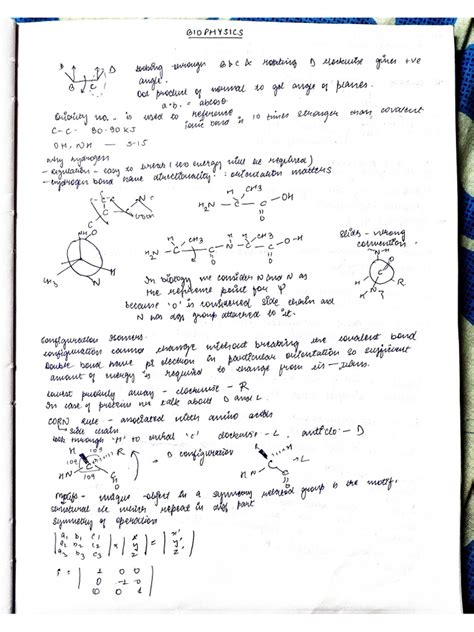 BIOPHYSICS
D looking through B & C & rotating D clockwise gives +ve
B C angle.
Dot product of normal to get angle of planes.
a·b = abcosθ
no. is used to reference
C-C- 80-90 KJ ionic bond is 10 times stronger than covalent
OH, NH — 3-15
why hydrogen
- regulation - easy to break (less energy will be required)
- hydrogen bond have directionality : orientation matters
C N
C C COOH
H CH3
H2N - C - C - OH
H O
C
NH O
CH3 N H
H CH3 H CH3
H2N - C - C - N - C - C - O-H
O H H O
Slides - wrong
convention.
C O
H R
N
In biology we consider N and N as
the reference point for ψ
because 'O' is considered side chain and
N has any group attached to it.
Configuration Isomers.
configuration cannot change without breaking the covalent bond
double bond have pi electron in particular orientation so sufficient
amount of energy is required to change from cis - trans.
lowest priority away - clockwise - R
In case of proteins we talk about D and L.
CORN Rule - associated with amino acids
side chain
look through 'H' to chiral 'C' clockwise - L, anticlo - D
H 109 R
109 C
H2N 109 C O
H
→ D configuration
R
H C
H2N C O
→ L
Motifs - unique object in a symmetry related group is the motif.
structural ele which repeat in any part
symmetry of operation
| a1 b1 c1 | | x | | x' |
| a2 b2 c2 | x | y | = | y' |
| a3 b3 c3 | | z | | z' |
i = | 1 0 0 |
| 0 -1 0 |
| 0 0 1 |